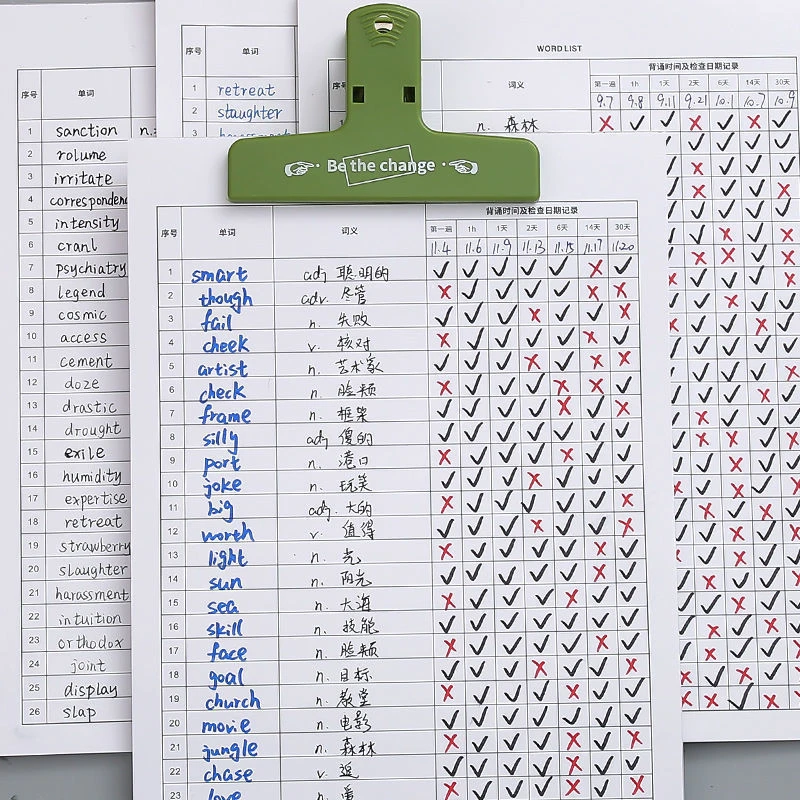 WORD LIST
序号 单词 词义 背诵时间及检查日期记录
第一遍 1h 1天 2天 6天 14天 30天
9.7 9.8 9.11 9.21 10.1 10.7 10.9
n. 森林
序号 单词
1 retreat
2 staughter
3 harassment
序号 单词
1 sanction n.
2 rolume
3 irritate
4 correspondenc
5 intensity
6 cranl
7 psychiatry
8 legend
9 cosmic
10 access
11 cement
12 doze
13 drastic
14 drought
15 exile
16 humidity
17 expertise
18 retreat
19 strawberry
20 slaughter
21 harassment
22 intuition
23 orthodox
24 joint
25 display
26 slap
Be the change
序号 单词 词义 背诵时间及检查日期记录
第一遍 1h 1天 2天 6天 14天 30天
11.4 11.6 11.9 11.13 11.15 11.17 11.20
1 smart adj 聪明的
2 though adv. 尽管
3 fail n. 失败
4 cheek v. 核对
5 artist n. 艺术家
6 check n. 脸颊
7 frame n. 框架
8 silly adj 傻的
9 port n. 港口
10 joke n. 玩笑
11 big adj. 大的
12 worth v. 值得
13 light n. 光
14 sun n. 阳光
15 sea n. 大海
16 skill n. 技能
17 face n. 脸颊
18 goal n. 目标
19 church n. 教堂
20 movie n. 电影
21 jungle n. 森林
22 chase v. 追
23 love n.